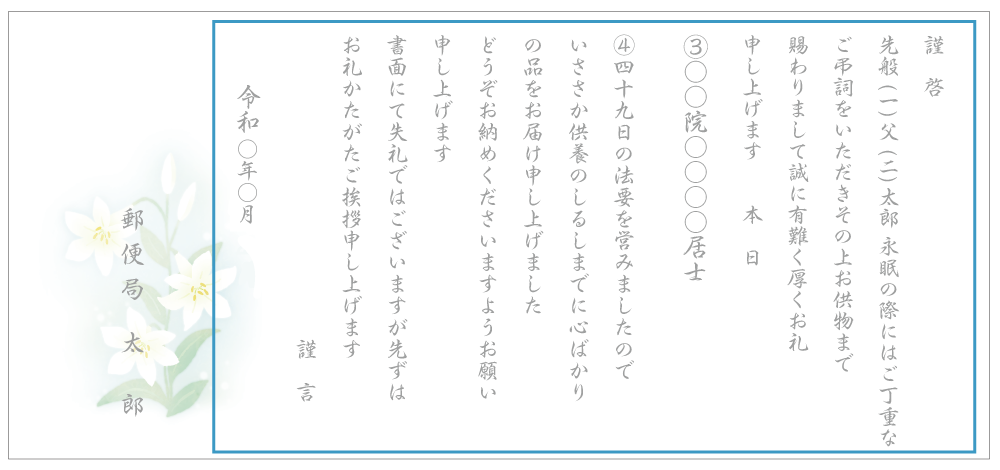 謹 啓
先般（一）父（二）太郎 永眠の際にはご丁重な
ご弔詞をいただきその上お供物まで
賜わりまして誠に有難く厚くお礼
申し上げます　本　日
③〇〇院〇〇〇〇居士
④四十九日の法要を営みましたので
いささか供養のしるしまでに心ばかり
の品をお届け申し上げました
どうぞお納めくださいますようお願い
申し上げます
書面にて失礼ではございますが先ずは
お礼かたがたご挨拶申し上げます
謹　言
令和〇年〇月
郵便局　太　郎